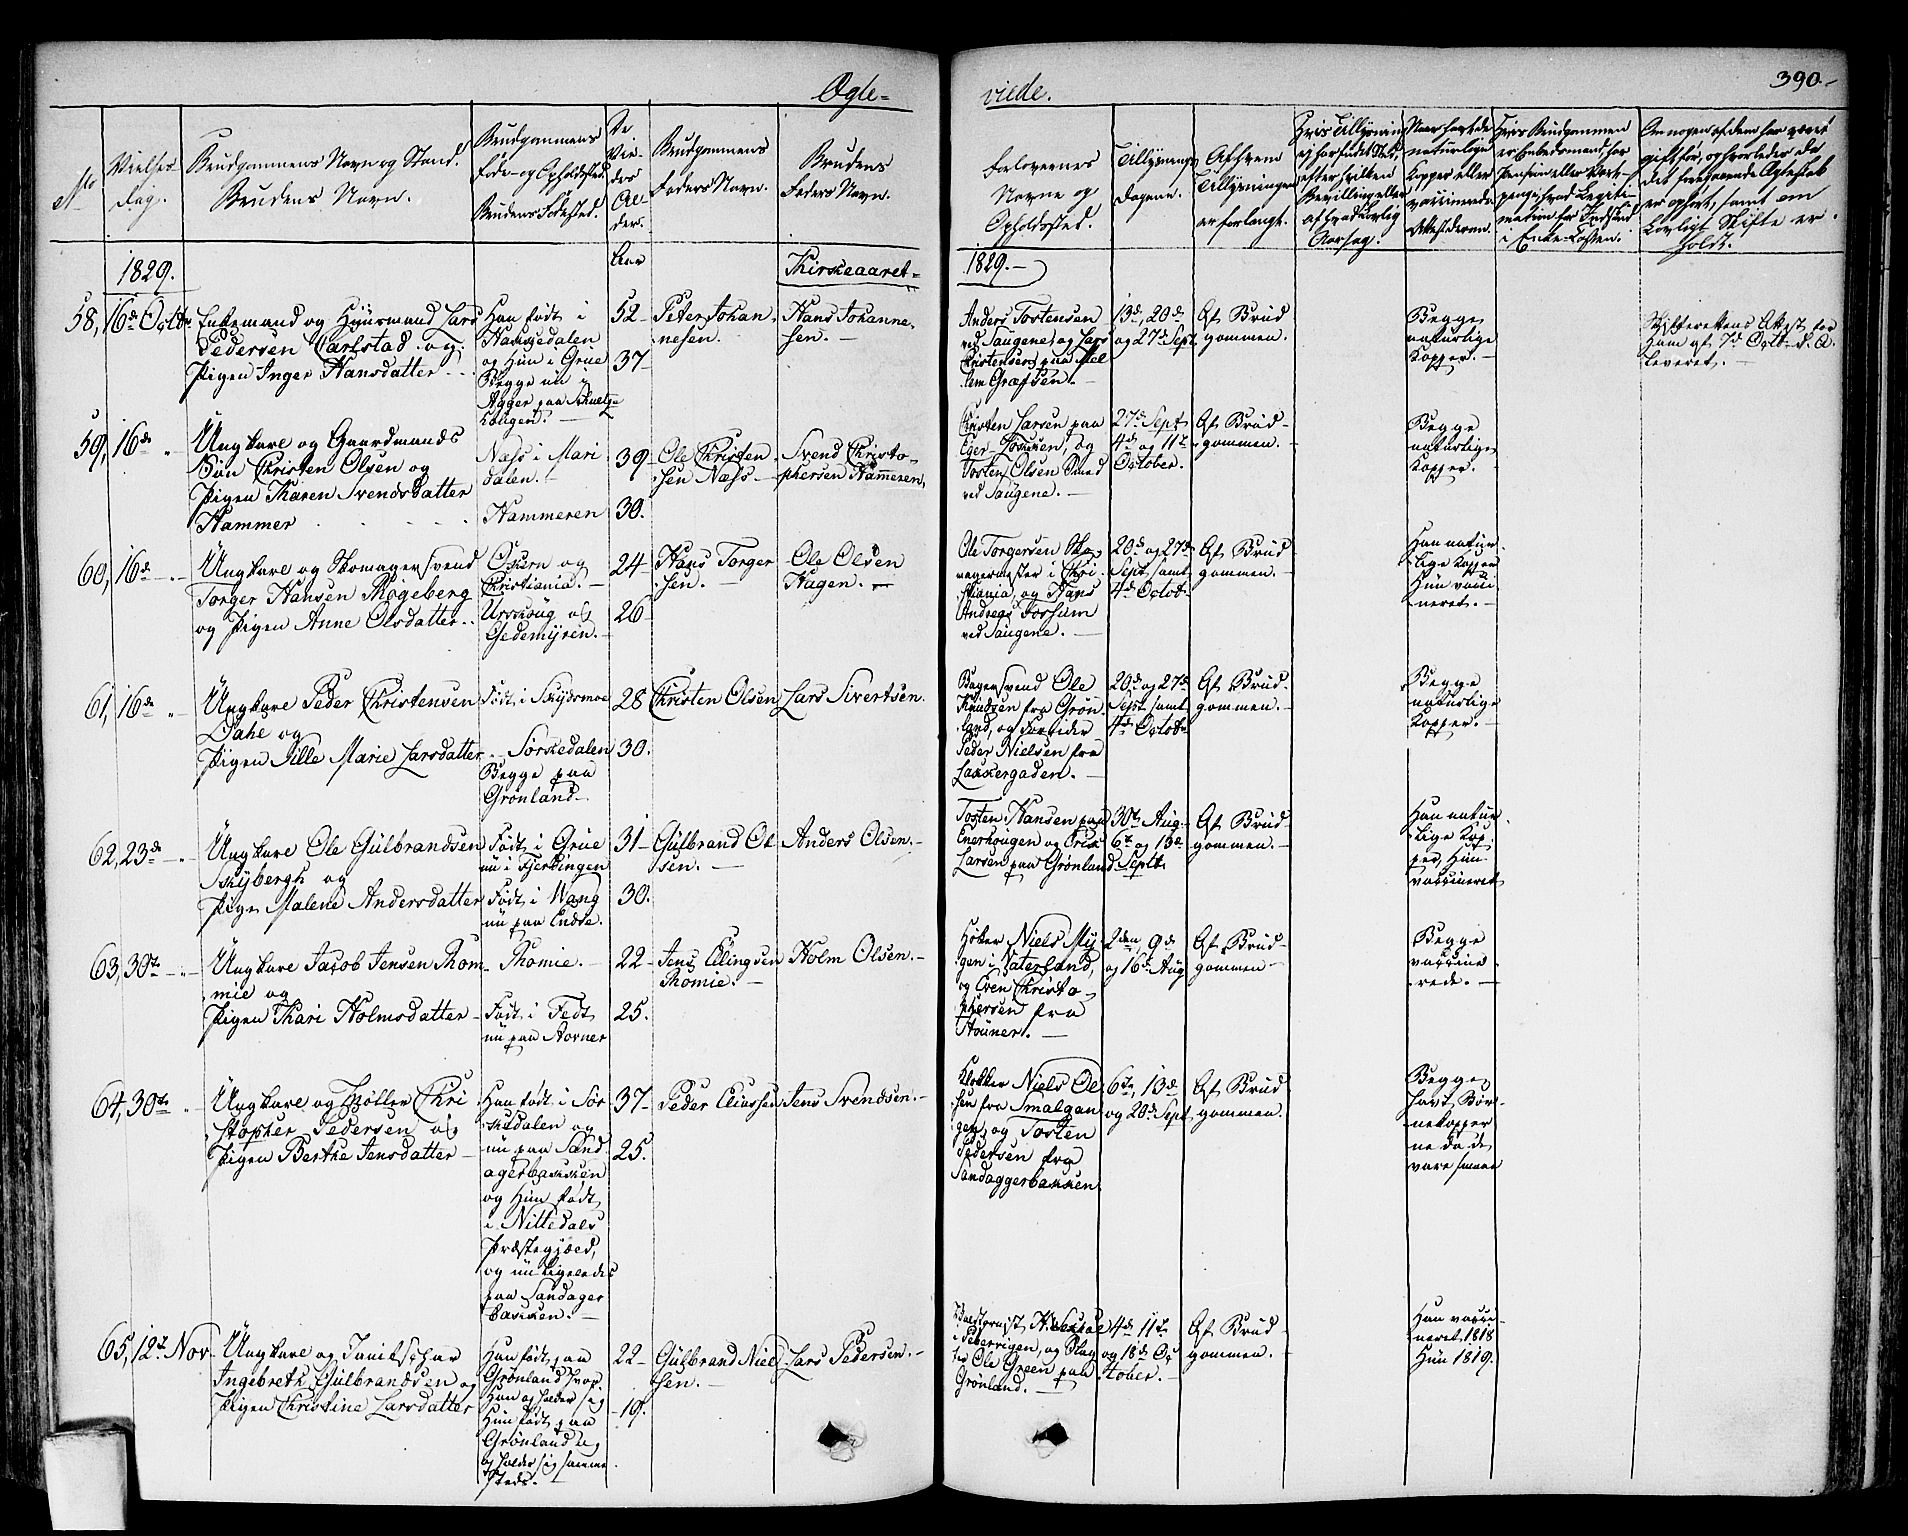 Ægte-
viede.
390.-
No
Vielses
Dag.
Brudgommens Navn og Stand.
Brudens Navn.
Brudgommens
Føde- og Opholdsted.
Brudens Fødested.
De
Vie-
des
Al-
der.
Brudgommens
Faders Navn.
Brudens
Faders Navn.
Forlovernes
Navne og
Opholdssted.
Tillysnings
Dagene.
Af hvem
Tillysningen
er forlangt.
Hvis Tillysning
ej har fundet Sted,
efter hvilken
Bevilling eller
af hvad Lovlig
Aarsag.
Naar havt de
naturlige
Kopper eller
vaccinerede
Attesteren.
Hvis Brudgommen
er Embedsmand, har
Pension eller Vart-
penge, hvad Legiti-
mation for Indskud
i Enke-Cassen.
Om nogen af dem har været
gift før, og hvorledes da
det foregaaende Ægteskab
er ophørt, samt om
Lovligt Skifte er
holdt.
1829.
Aar
Kirkeaaret-
1829.-
58, 16de Octbr.
Enkemand og Huusmand Lars
Pedersen Carlstad og
Pigen Inger Hansdatter
Han født i
Hakkedalen
og Hun i Grue
Begge nu i
Agger paa
52-
37-
Peter Johan-
nesen.
Hans Johanne-
sen.-
Anders Tostensen
ved Saugene, og Lars
Christensen paa Mel
lem Grefsen.-
13de, 20de
og 27de Sept
Af Brud
gommen.
Begge
naturlige
Kopper.-
Skifterettens Attest for
Ham af 7de Octb. d. A.
Leveret.-
59, 16de "
Ungkare og Gaardmands
Søn Christen Olsen og
Pigen Karen Svendsdatter
Hammer
Næss i Mari
dalen.-
Hammeren
39-
30.
Ole Christen-
sen Næss-
Svend Christo-
phersen Hammeren,
Christen Larsen paa
Tosten Olsen Sand
ved Saugene.-
27de Sept
4de og 11te
October.
Af Brud-
gommen.-
Begge
naturlige
Kopper.-
60, 16de "
Ungkare og Skomagersvend
Torger Hansen Thøgeberg
og Pigen Anne Olsdatter.
og
Christiania.-
Urskoug og
Gedemyren.-
24-
26-
Hans Torger
sen.-
Ole Olsen
Hagen.-
Ole Torgersen Sko-
magermester i Chri
stiania, og Hans
Andreas Fossum
ved Saugene.-
20de og 27de
Sept samt
4de Octob-
Af Brud-
gommen.-
Han natur-
lige Kopper
Hun vacci
neret.-
61, 16de "
Ungkare Peder Christensen
Dahl og
Pigen Sille Marie Larsdatter
Født i Skydsmoe
Sørkedalen
Begge paa
Grønland-
28
30.
Christen Olsen
Lars Sivertsen.
Bagersvend Ole
Knudsen fra Grøn-
land, og
Peder Nielsen fra
Lakkergaden.-
20de og 27de
Sept samt
4de Octob-
Af Brud-
gommen.-
Begge
naturlige
Kopper.-
62, 23de "
Ungkare Ole Gulbrandsen
Skybergh og
Pigen Malene Andersdatter
Født i Grue
nu i Fjerdingen
Født i Wang
nu paa Endse.
31-
30.
Gulbrand Ol
sen.-
Anders Olsen.-
Tosten Hansen paa
Enerhougen og Erik
Larsen paa Grønland
30te Aug-
6te og 13de
Septb
Af Brud-
gommen.-
Han natur
lige Kop
per, Hun
vaccineret
63, 30te "
Ungkare Jacob Jensen Thom-
mie og
Pigen Kari Holmsdatter-
Thomie.-
Født i Fedt
nu paa Hovner
22-
25.
Jens Ellingsen
Thomie.-
Holm Olsen.-
Høker Niels My
gen i Vaterland,
og Even Christo-
phersen fra
Houner.-
2den, 9de
og 16de Aug
Af Brud-
gommen-
Begge
vaccine
rede.-
64, 30te "
Ungkare og Møller Chri
stopher Pedersen og
Pigen Berthe Jensdatter-
Han født i Sør
kedalen og
nu paa Sand
agerbakken
og Hun født
i Nittedals
Præstegjæld,
og nu ligeledes
paa Sandager
bakken.-
37-
25.
Peder Eliassen
Jens Svendsen.-
Klokker Niels Ol
sen fra Smalgan
gen, og Tosten
Pedersen fra
Sandaggerbakken.
6te, 13de
og 20de Sept
Af Brud
gommen.-
Begge
havt Bør-
nekopper
ne da de
vare smaae
65, 12te Nov
Ungkare og Janitschar
Ingebreth Gulbrandsen og
Pigen Christine Larsdatter
Han født paa
Grønland hvor
Han og holder sig
Hun født paa
Grønland
og holder sig samme
steds.-
22-
19.
Gulbrand Niel
sen.-
Lars Pedersen.-
i Pebervigen, og Slag
ter Ole Green paa
Grønland.-
4de, 11te
og 18de Oc
tober.-
Af Brud-
gommen.-
Han vacci-
neret 1818
Hun 1819.